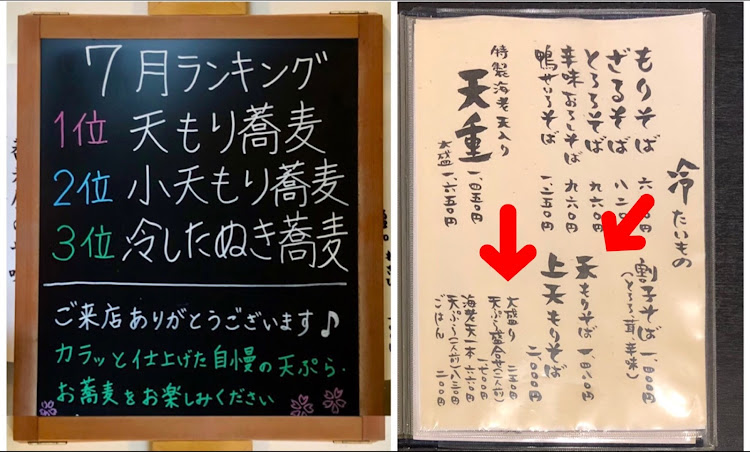 7月ランキング
1位 天もり蕎麦
2位 小天もり蕎麦
3位 冷したぬき蕎麦
ご来店ありがとうございます♪
カラッと仕上げた自慢の天ぷら・
お蕎麦をお楽しみください
冷たいもの
もりそば
ざるそば
とろろそば 九六〇円
辛味おろしそば 九六〇円
鴨せいろそば 一、二五〇円
特製海老天入り
天重 一、四五〇円
大盛 一、六五〇円
割子そば 一、八〇〇円
(とろろ、茸、辛味)
天もりそば
上天もりそば 二、〇〇〇円
大盛り
天ぷら盛合せ(二人前) 一、七〇〇円
海老天一本 六六〇円
天ぷら(一人前)
ごはん 二〇〇円